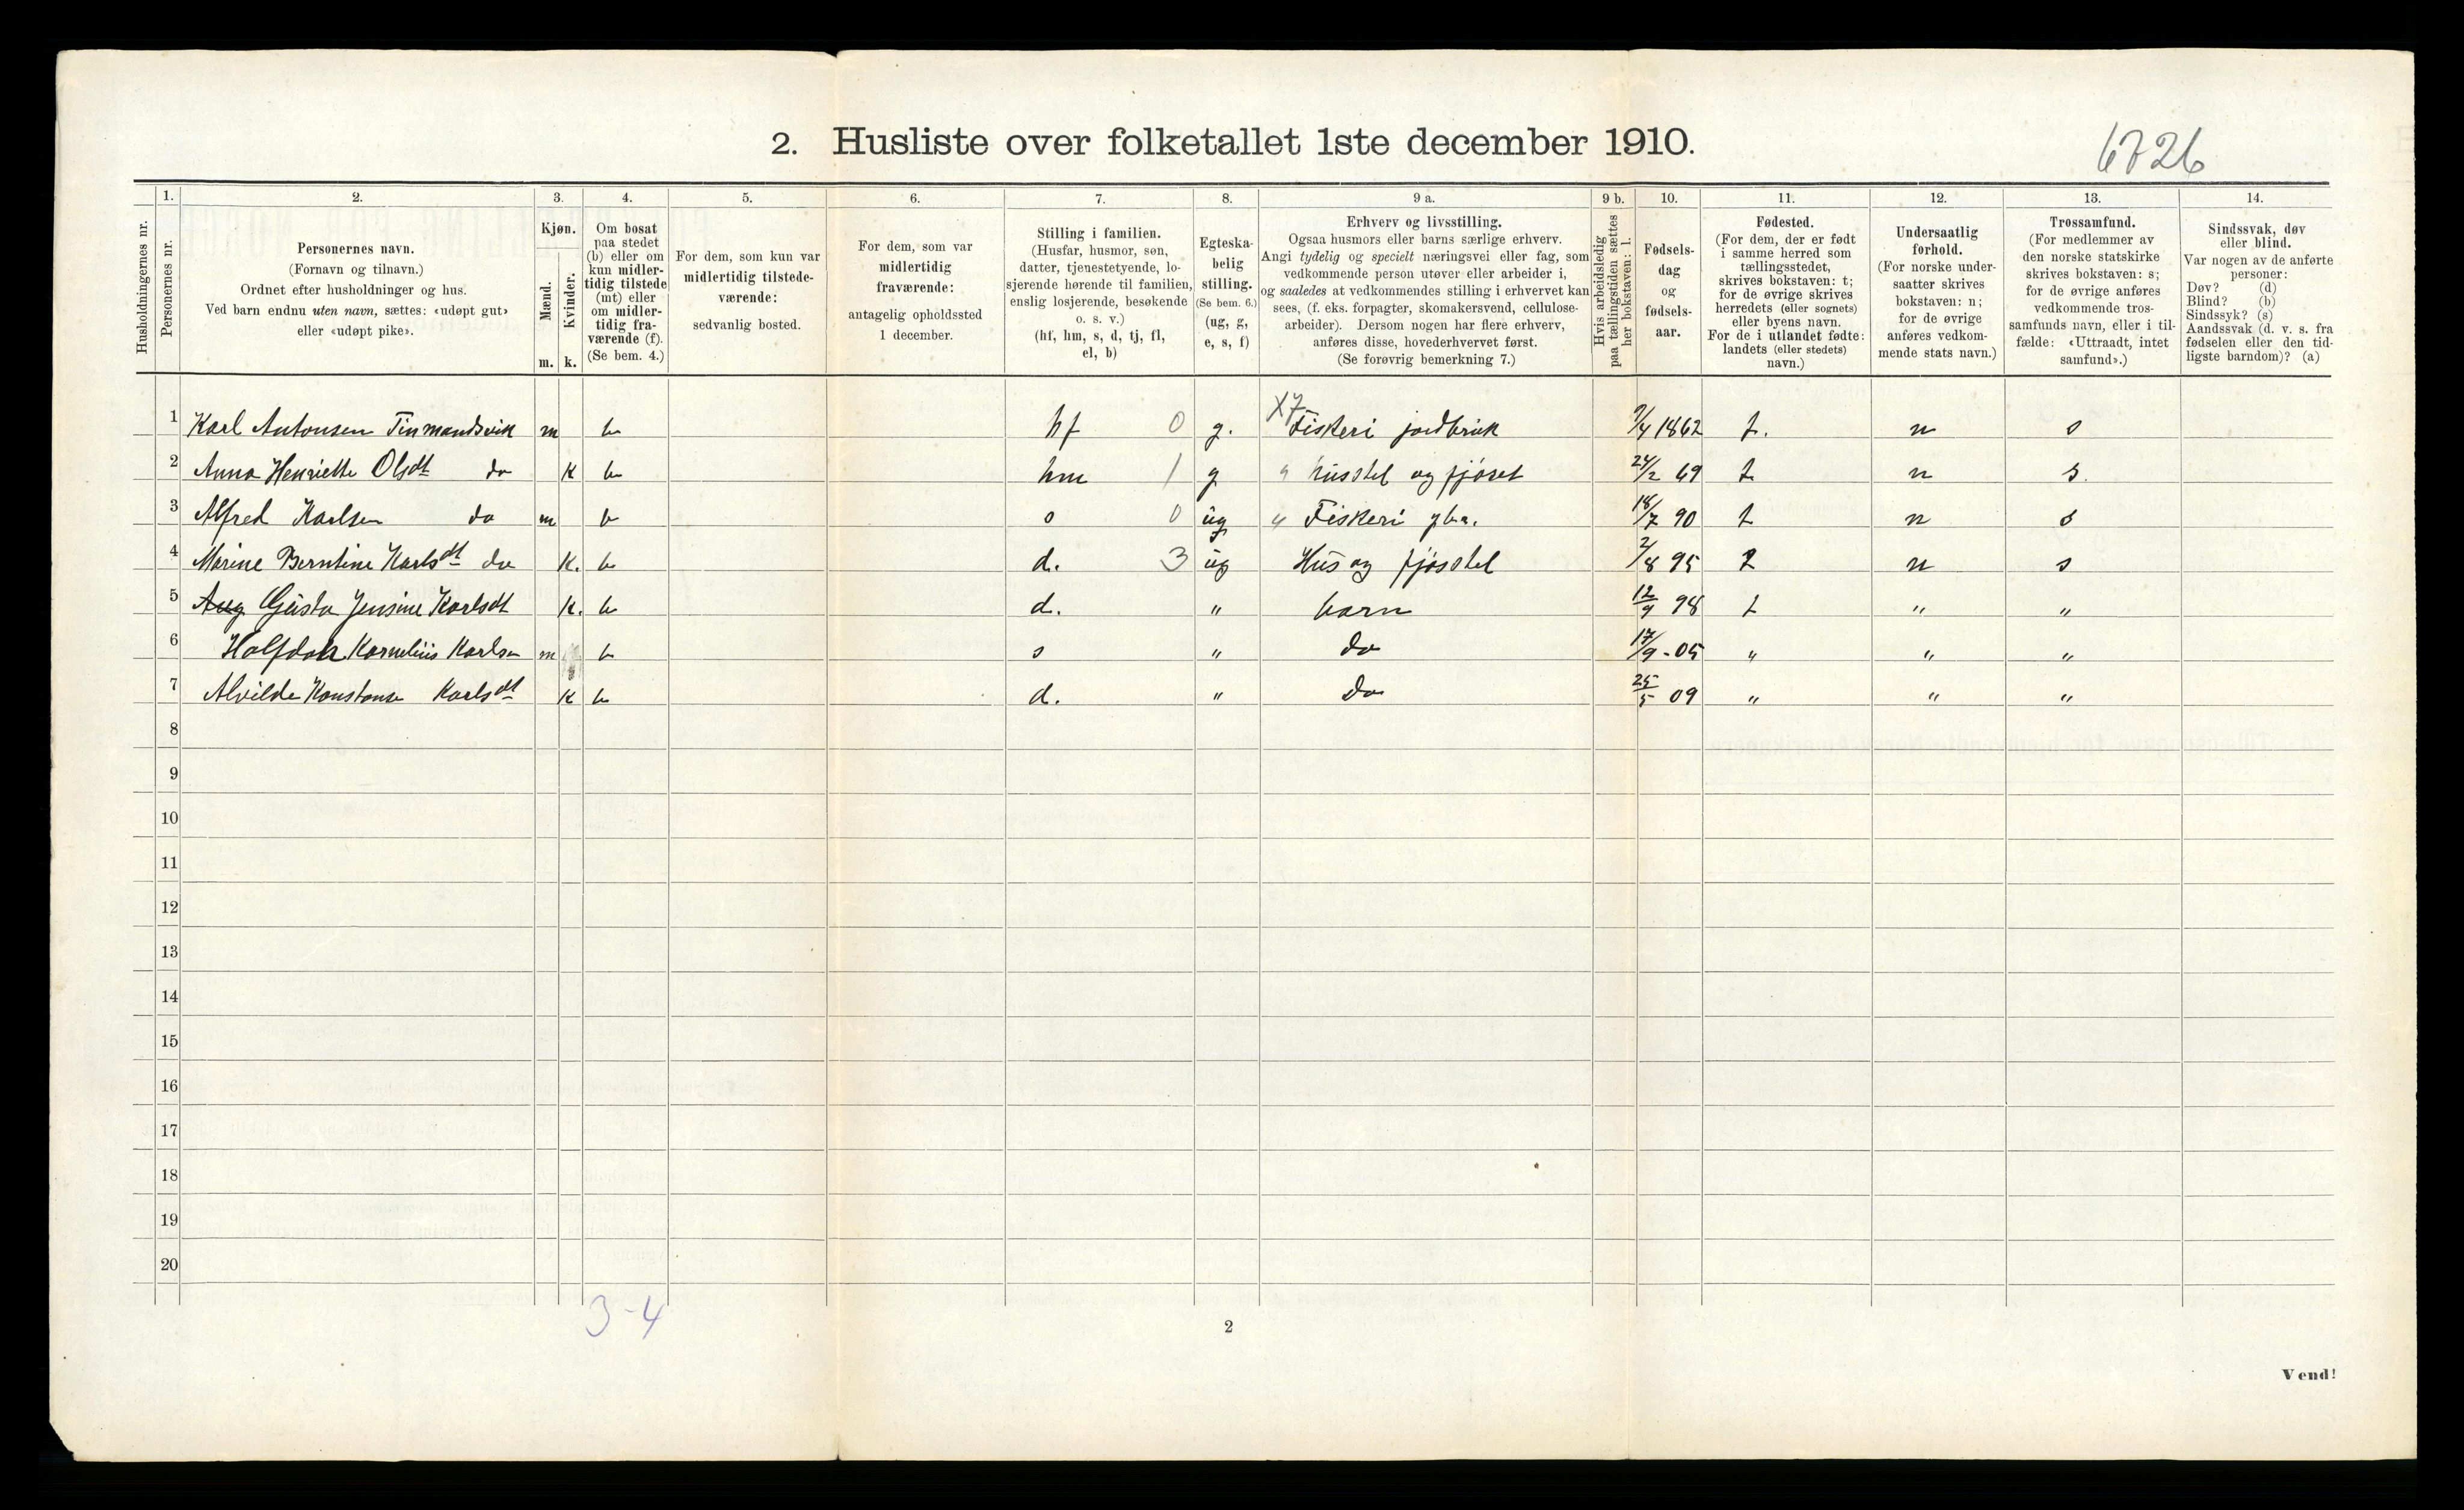 2. Husliste over folketallet 1ste december 1910.
6726
Husholdningernes nr.
1.
Personernes nr.
2.
Personernes navn.
(Fornavn og tilnavn.)
Ordnet efter husholdninger og hus.
Ved barn endnu uten navn, sættes: «udøpt gut»
eller «udøpt pike».
3.
Kjøn.
Mænd.
m.
Kvinder.
k.
4.
Om bosat
paa stedet
(b) eller om
kun midler-
tidig tilstede
(mt) eller
om midler-
tidig fra-
værende (f).
(Se bem. 4.)
5.
For dem, som kun var
midlertidig tilstede-
værende:
sedvanlig bosted.
6.
For dem, som var
midlertidig
fraværende:
antagelig opholdssted
1 december.
7.
Stilling i familien.
(Husfar, husmor, søn,
datter, tjenestetyende, lo-
sjerende hørende til familien,
enslig losjerende, besøkende
o. s. v.)
(hf, hm, s, d, tj, fl,
el, b)
8.
Egteska-
belig
stilling.
(Se bem. 6.)
(ug, g,
e, s, f)
9 a.
Erhverv og livsstilling.
Ogsaa husmors eller barns særlige erhverv.
Angi tydelig og specielt næringsvei eller fag, som
vedkommende person utøver eller arbeider i,
og saaledes at vedkommendes stilling i erhvervet kan
sees, (f. eks. forpagter, skomakersvend, cellulose-
arbeider). Dersom nogen har flere erhverv,
anføres disse, hovederhvervet først.
(Se forøvrig bemerkning 7.)
9 b.
Hvis arbeidsledig
paa tællingstiden sættes
her bokstaven: l.
10.
Fødsels-
dag
og
fødsels-
aar.
11.
Fødested.
(For dem, der er født
i samme herred som
tællingsstedet,
skrives bokstaven: t;
for de øvrige skrives
herredets (eller sognets)
eller byens navn.
For de i utlandet fødte:
landets (eller stedets)
navn.)
12.
Undersaatlig
forhold.
(For norske under-
saatter skrives
bokstaven: n;
for de øvrige
anføres vedkom-
mende stats navn.)
13.
Trossamfund.
(For medlemmer av
den norske statskirke
skrives bokstaven: s;
for de øvrige anføres
vedkommende tros-
samfunds navn, eller i til-
fælde: «Uttraadt, intet
samfund».)
14.
Sindssvak, døv
eller blind.
Var nogen av de anførte
personer:
Døv? (d)
Blind? (b)
Sindssyk? (s)
Aandssvak (d. v. s. fra
fødselen eller den tid-
ligste barndom)? (a)
X7
1 Karl Antonsen Finmandsvik m b hf 0 g. Fiskeri jordbruk 9/4 1862 t. n s
2 Anna Henriette Olsdt do k b hm 1 g " husstel og fjøset 24/2 69 t n s.
3 Alfred Karlsen do m b s 0 ug " Fiskeri gba. 18/7 90 t n s
4 Marine Berntine Karlsdt do k. b d. 3 ug Hus og fjøsstel 2/8 95 t n s
5 Aug Gusta Jensine Karlsdt k. b d. " barn 12/9 98 t " "
6 Halfdan Kornelius Karlsen m b s " do 17/9 - 05 " " "
7 Alvilde Konstanse Karlsdt k b d. " Do 25/5 09 " " "
8
9
10
11
12
13
14
15
16
17
18
19
20
3-4
2
Vend!